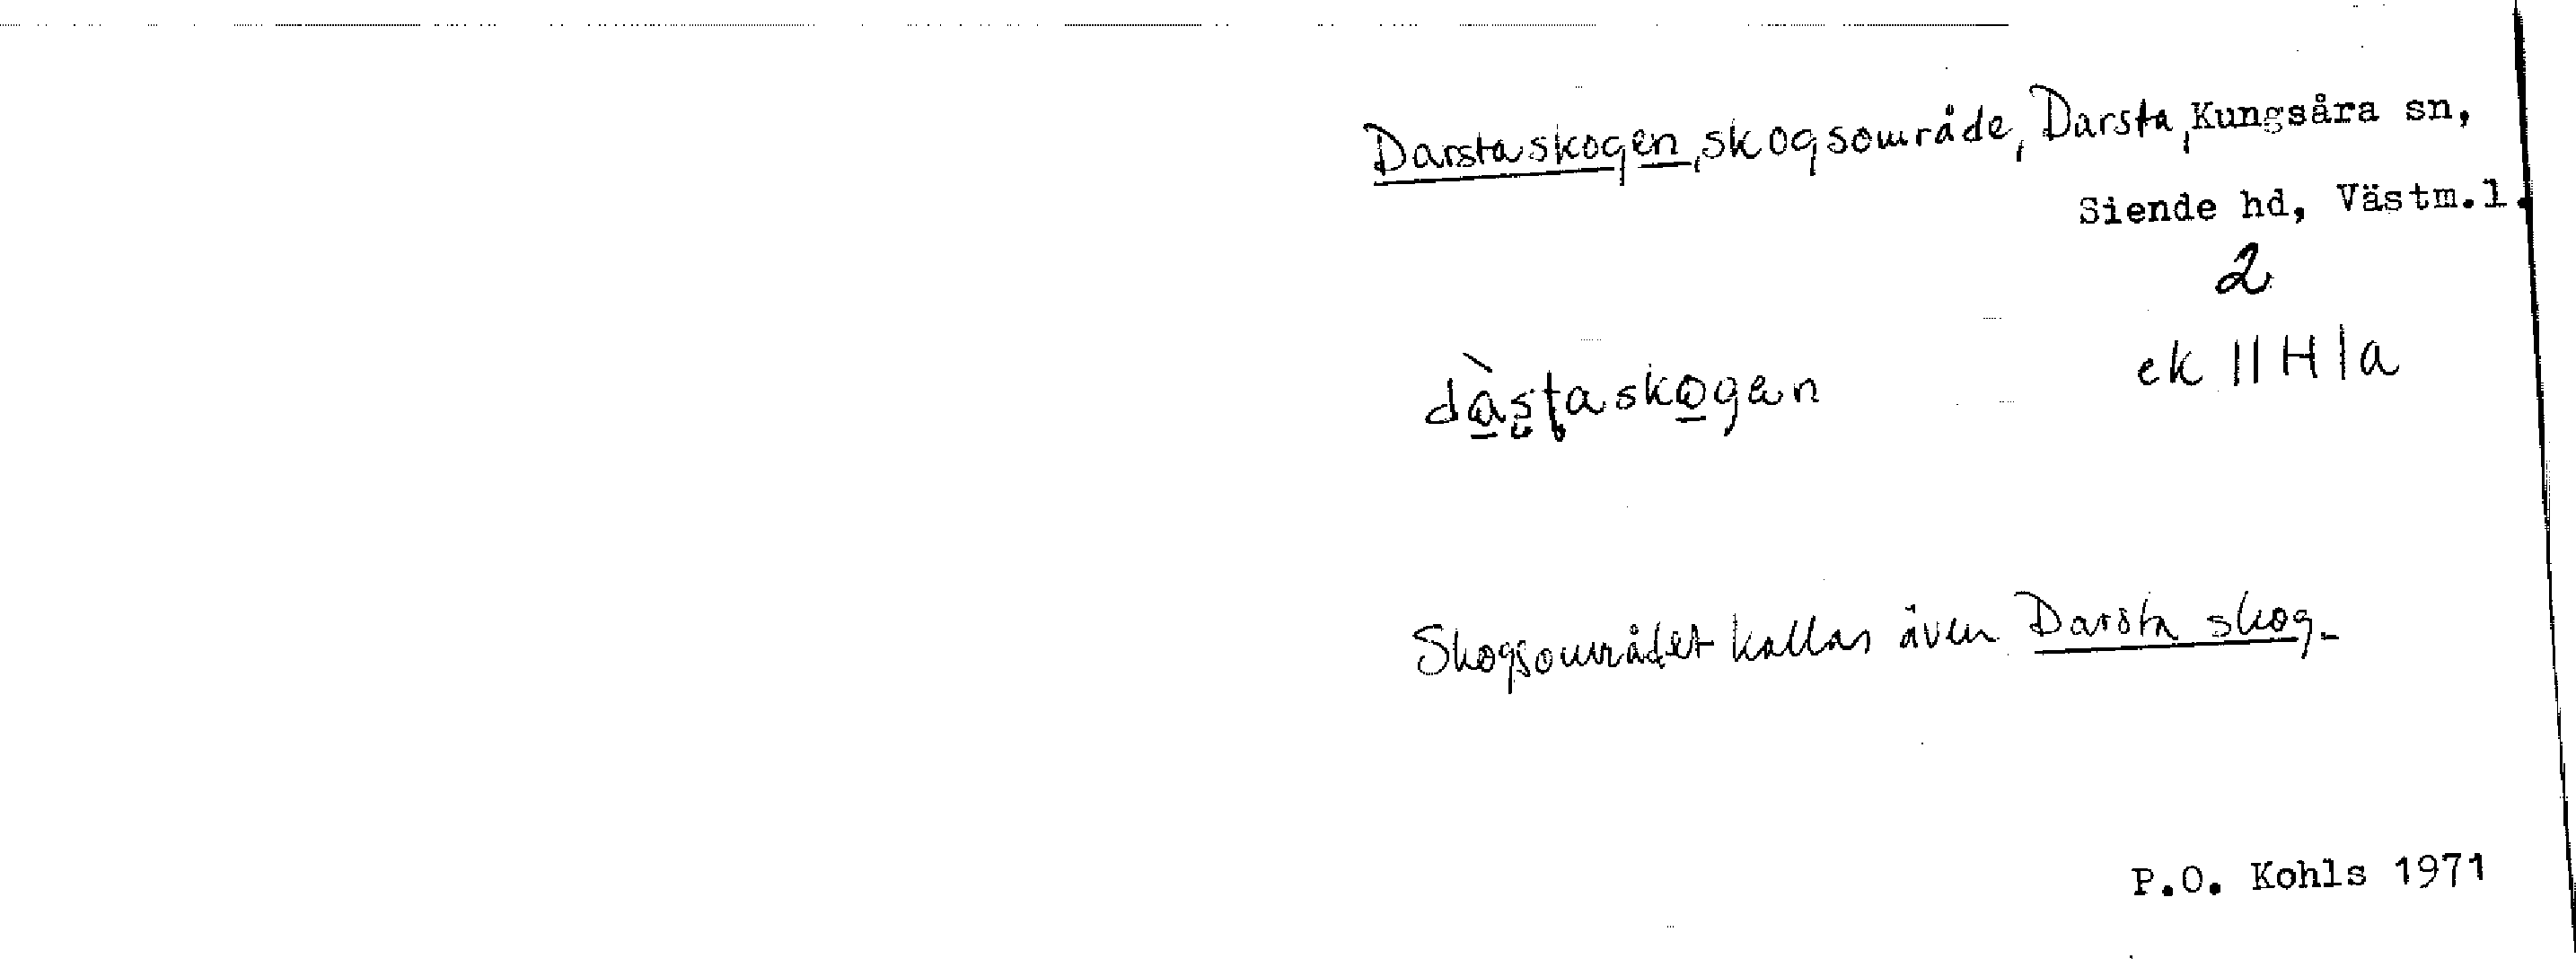 Darstaskogen, skogsområde, Darsta, Kungsåra sn,
Siende hd, Västm.l.
2
dàstaskogen
ek 11 H 1a
Skogsområdet kallas även Darsta skog.
P.O. Kohls 1971